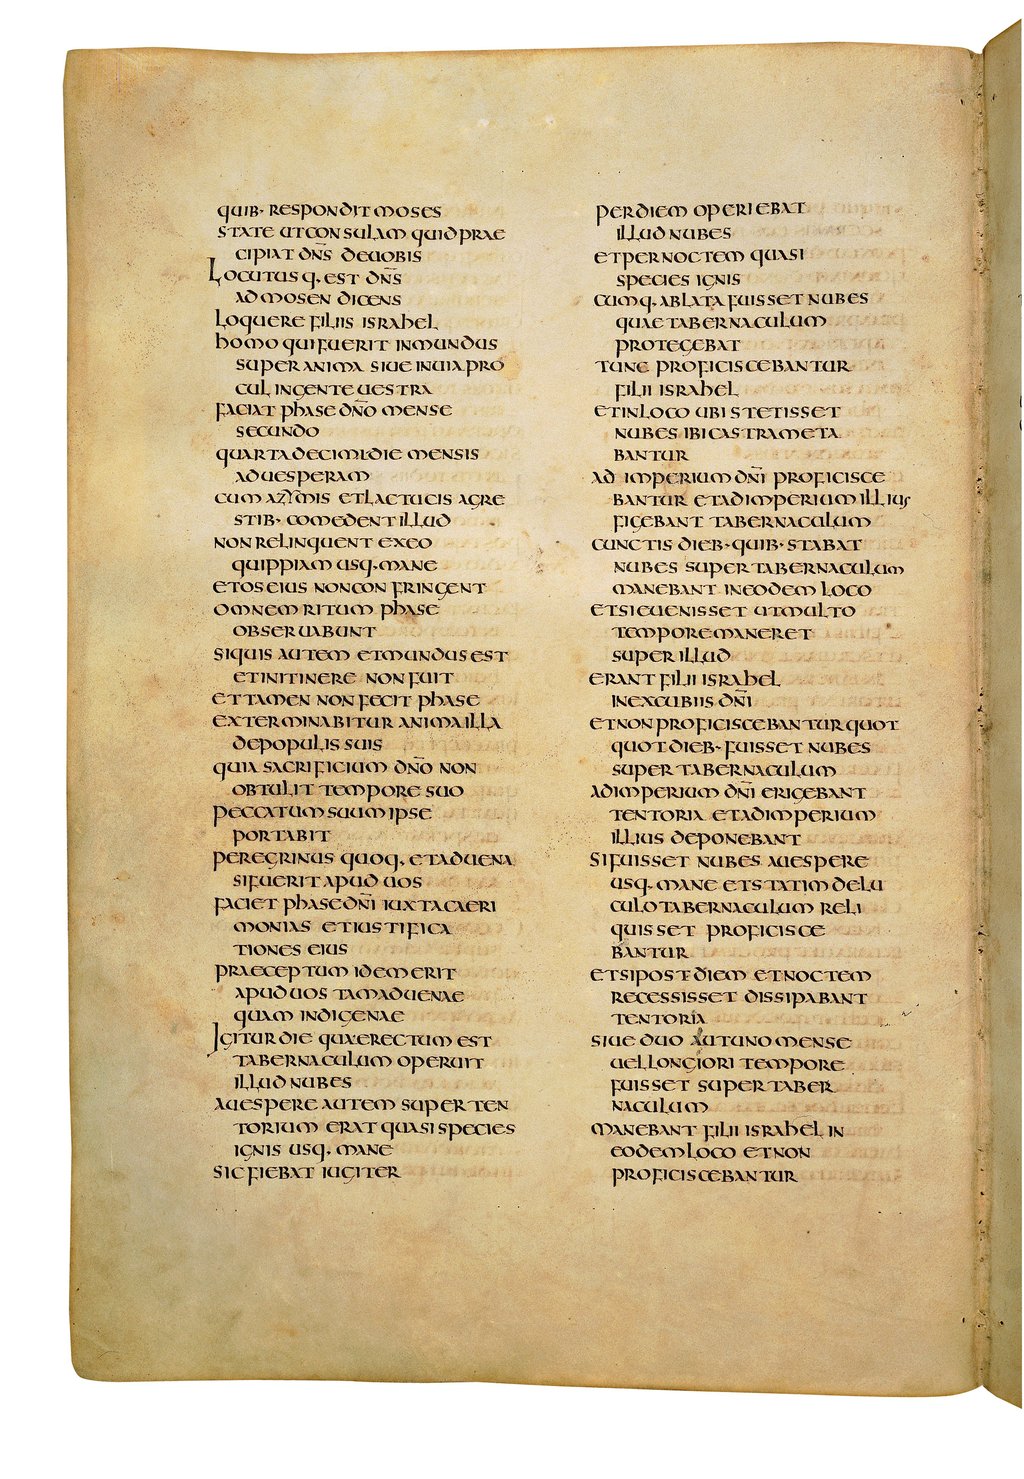 QUIB· RESPONDIT MOSES
STATE UT CONSULAM QUID PRAE
CIPIAT DN̄S DE UOBIS
LOCUTUSQ· EST DN̄S
AD MOSEN DICENS
LOQUERE FILIIS ISRAHEL
HOMO QUI FUERIT INMUNDUS
SUPER ANIMA SIUE IN UIA PRO
CUL IN GENTE UESTRA
FACIAT PHASE DN̄O MENSE
SECUNDO
QUARTADECIMI· DIE MENSIS
AD UESPERAM
CUM AZYMIS ET LACTUCIS AGRE
STIB· COMEDENT ILLUD
NON RELINQUENT EX EO
QUIPPIAM USQ· MANE
ET OS EIUS NON CONFRINGENT
OMNEM RITUM PHASE
OBSERUABUNT
SI QUIS AUTEM ET MUNDUS EST
ET IN ITINERE NON FUIT
ET TAMEN NON FECIT PHASE
EXTERMINABITUR ANIMA ILLA
DE POPULIS SUIS
QUIA SACRIFICIUM DN̄O NON
OBTULIT TEMPORE SUO
PECCATUM SUUM IPSE
PORTABIT
PEREGRINUS QUOQ· ET ADUENA
SI FUERIT APUD UOS
FACIET PHASE DN̄I IUXTA CAERI
MONIAS ET IUSTIFICA
TIONES EIUS
PRAECEPTUM IDEM ERIT
APUD UOS TAM ADUENAE
QUAM INDIGENAE
IGITUR DIE QUA ERECTUM EST
TABERNACULUM OPERUIT
ILLUD NUBES
A UESPERE AUTEM SUPER TEN
TORIUM ERAT QUASI SPECIES
IGNIS USQ· MANE
SIC FIEBAT IUGITER
PER DIEM OPERIEBAT
ILLUD NUBES
ET PER NOCTEM QUASI
SPECIES IGNIS
CUMQ· ABLATA FUISSET NUBES
QUAE TABERNACULUM
PROTEGEBAT
TUNC PROFICISCEBANTUR
FILII ISRAHEL
ET IN LOCO UBI STETISSET
NUBES IBI CASTRAMETA
BANTUR
AD IMPERIUM DN̄I PROFICISCE
BANTUR ET AD IMPERIUM ILLIUS
FIGEBANT TABERNACULUM
CUNCTIS DIEB· QUIB· STABAT
NUBES SUPER TABERNACULUM
MANEBANT IN EODEM LOCO
ET SI EUENISSET UT MULTO
TEMPORE MANERET
SUPER ILLUD
ERANT FILII ISRAHEL
IN EXCUBIIS DN̄I
ET NON PROFICISCEBANTUR QUOT
QUOT DIEB· FUISSET NUBES
SUPER TABERNACULUM
AD IMPERIUM DN̄I ERIGEBANT
TENTORIA ET AD IMPERIUM
ILLIUS DEPONEBANT
SI FUISSET NUBES A UESPERE
USQ· MANE ET STATIM DELU
CULO TABERNACULUM RELI
QUISSET PROFICISCE
BANTUR
ET SI POST DIEM ET NOCTEM
RECESSISSET DISSIPABANT
TENTORIA
SIUE DUO AUT UNO MENSE
UEL LONGIORI TEMPORE
FUISSET SUPER TABER
NACULUM
MANEBANT FILII ISRAHEL IN
EODEM LOCO ET NON
PROFICISCEBANTUR